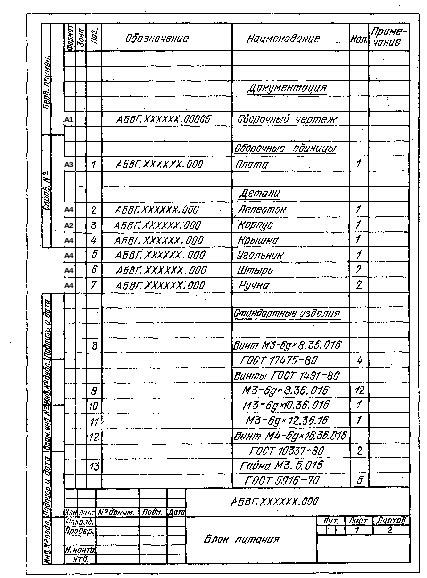 Формат Зона Поз. Обозначение Наименование Кол. Приме-
чание
Документация
А1 АБВГ.XXXXXX.000СБ Сборочный чертеж
Сборочные единицы
А3 1 АБВГ.XXXXXX.000 Плата 1
Детали
А4 2 АБВГ.XXXXXX.000 Лепесток 1
А2 3 АБВГ.XXXXXX.000 Корпус 1
А4 4 АБВГ.XXXXXX.000 Крышка 1
А4 5 АБВГ.XXXXXX.000 Угольник 1
А4 6 АБВГ.XXXXXX.000 Штырь 2
А4 7 АБВГ.XXXXXX.000 Ручка 2
Стандартные изделия
8 Винт М3-6g×8.36.016
ГОСТ 17475-80 4
Винты ГОСТ 1491-80
9 М3-6g×8.36.016 12
10 М3-6g×10.36.016 1
11 М3-6g×12.36.16 1
12 Винт М4-6g×16.36.016
ГОСТ 10337-80 2
13 Гайка М3.5.016
ГОСТ 5916-70 5
Перв. примен.
Справ. №
Подпись и дата
Подпись и дата
АБВГ.XXXXXX.000
Изм. Лист № докум. Подп. Дата
Разраб.
Провер.
Н.контр.
Утв.
Блок питания
Лит. Лист Листов
1 2